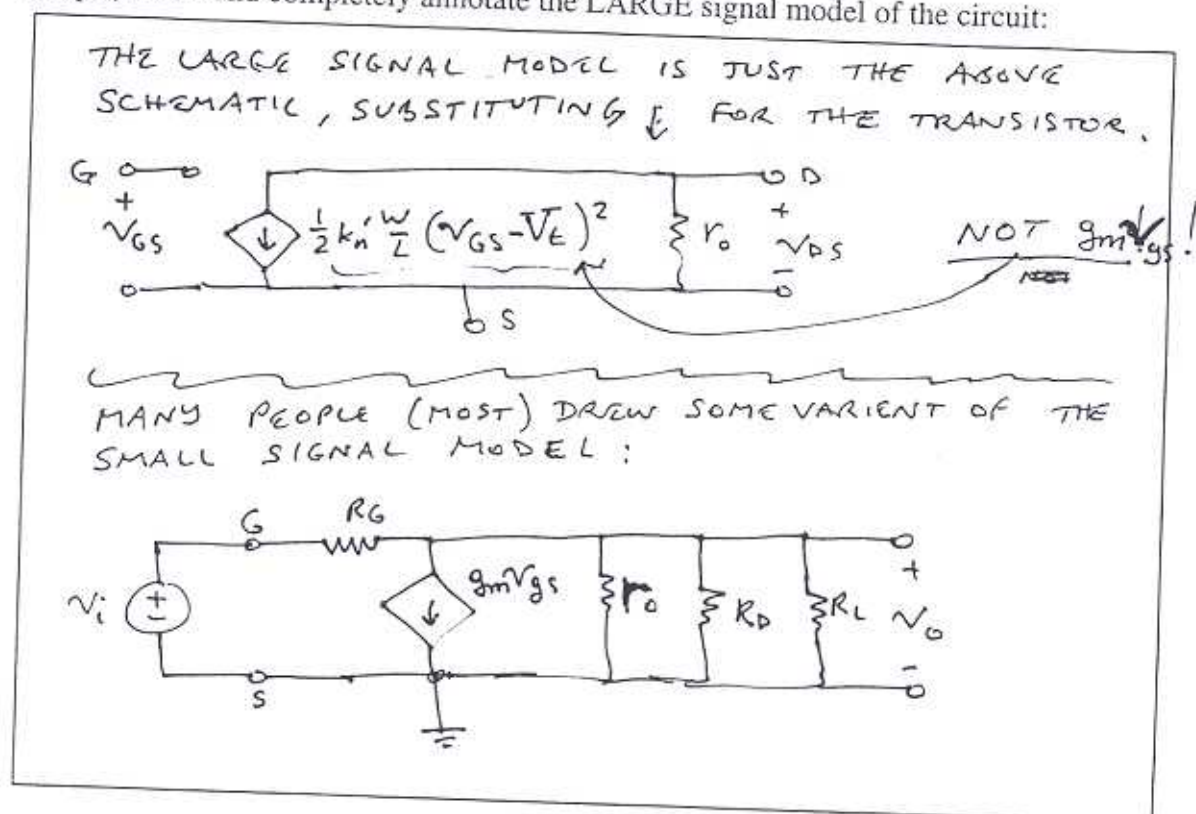 and completely annotate the LARGE signal model of the circuit:
THE LARGE SIGNAL MODEL IS JUST THE ABOVE
SCHEMATIC, SUBSTITUTING ↓ FOR THE TRANSISTOR.
G
D
+
+
V_GS
↓
1/2 k_n' W/L (V_GS - V_t)^2
r_o
V_DS
-
NOT g_m V_gs!
S
MANY PEOPLE (MOST) DREW SOME VARIENT OF THE
SMALL SIGNAL MODEL:
G
R_G
v_i
+
-
↓
g_m V_gs
r_o
R_D
R_L
+
V_o
-
S